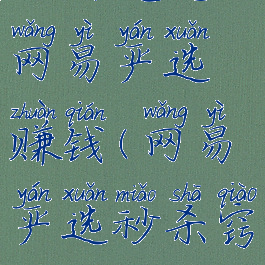 wǎng yì yán xuǎn
网易严选
zhuàn qián wǎng yì
赚钱(网易
yán xuǎn miǎo shā qiào
严选秒杀窍